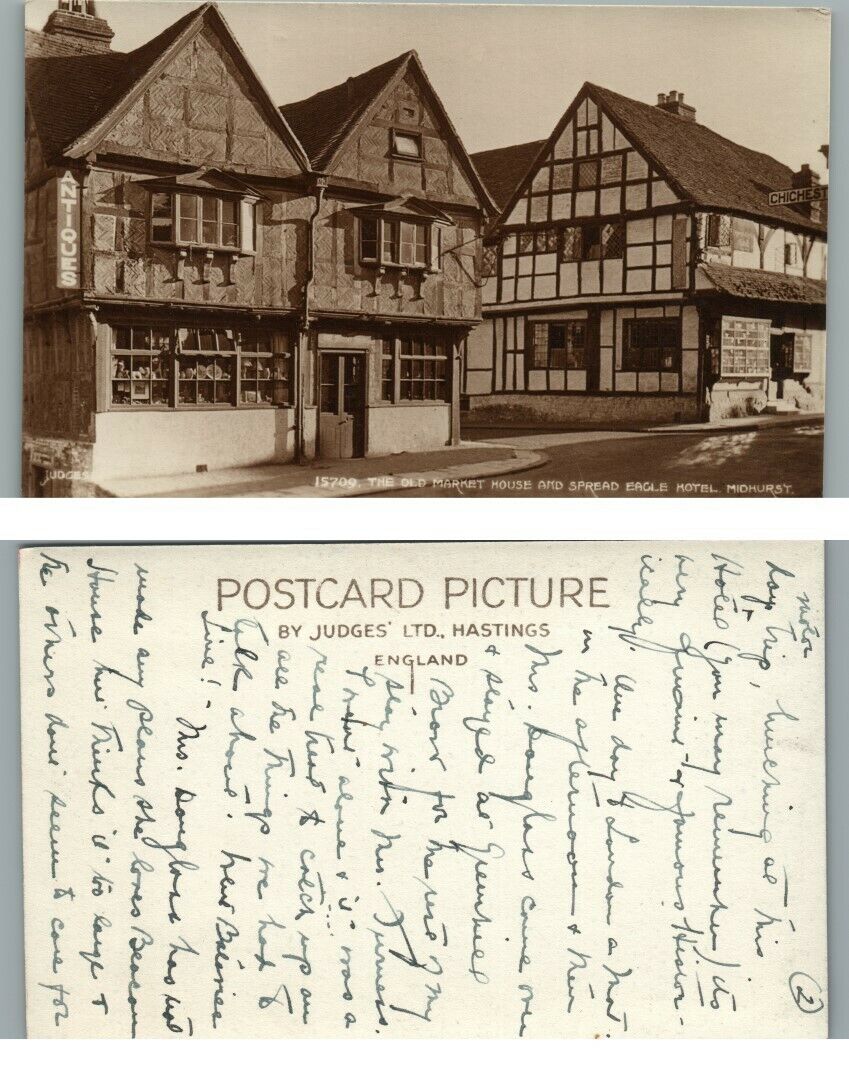 ANTIQUES
CHICHEST
JUDGES
15709. THE OLD MARKET HOUSE AND SPREAD EAGLE HOTEL. MIDHURST.
POSTCARD PICTURE
BY JUDGES' LTD., HASTINGS
ENGLAND
(2)
motor
day trip, lunching at this
Hotel (you may remember) its
very quaint & famous Histor-
ically. One day to London a mat.
in the afternoon & then
Mrs. Douglass came over
& stayed at Greenhill
Brow for the rest of my
stay with Mrs.
I was alone & it was a
real treat to catch up on
all the things we had to
talk about.
time! - Mrs. Douglass has not
made any plans she loves Beacon
House but thinks it too large &
the others don't seem to care for